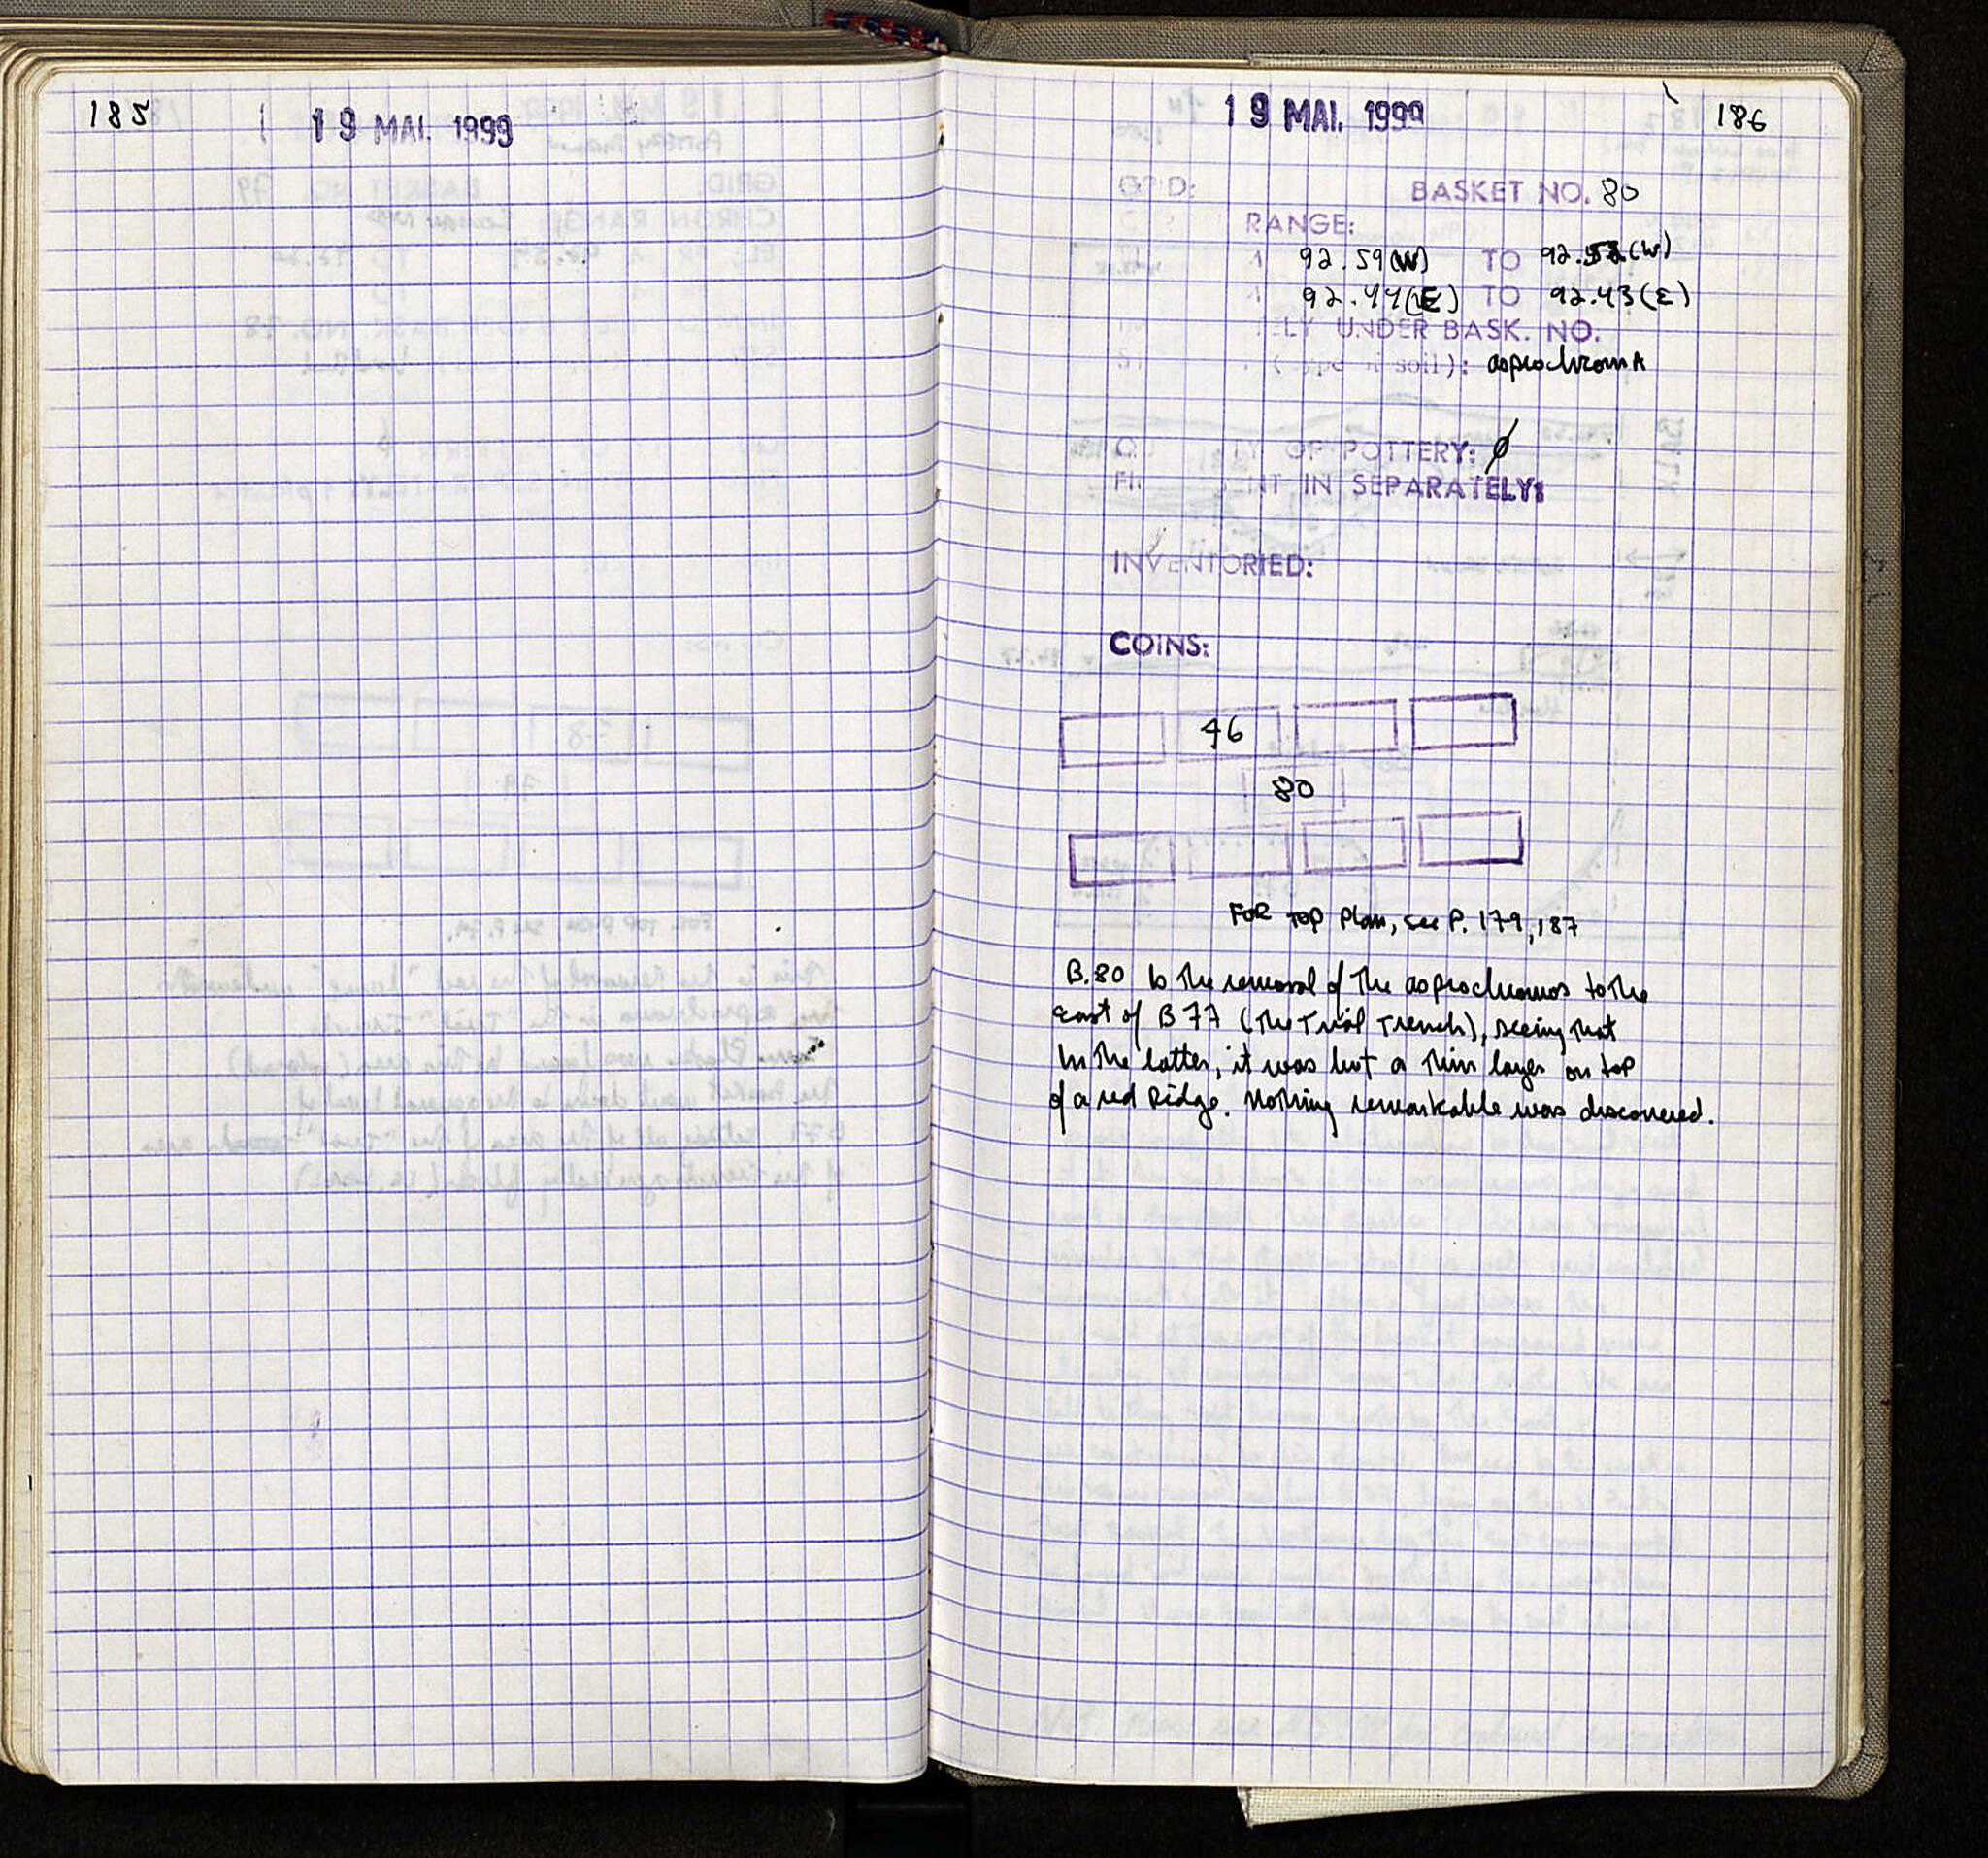 185
19 MAI. 1999
19 MAI. 1999
186
GRID: BASKET NO. 80
RANGE:
92.59(W) TO 92.52(W)
92.44(E) TO 92.43(E)
ELY UNDER BASK. NO.
soil): asprochromA
Q Y OF POTTERY: ∅
FI ENT IN SEPARATELY:
INVENTORIED:
COINS:
46
80
FOR TOP Plan, see P. 179, 187
B.80 is the removal of the asprochromos to the
east of B77 (the Trial Trench), seeing that
in the latter, it was but a thin layer on top
of a red Ridge. Nothing remarkable was discovered.